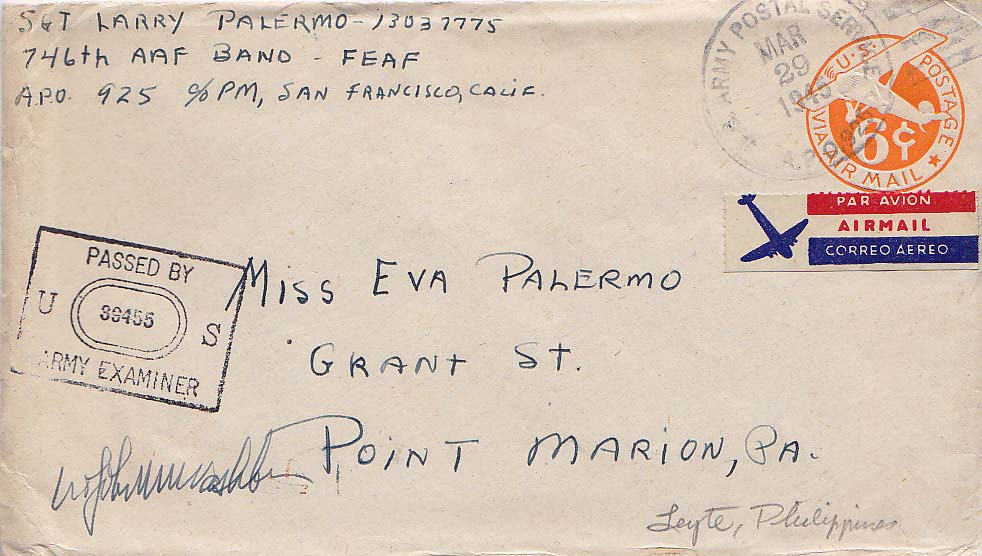 SGT LARRY PALERMO - 13037775
746th AAF BAND - FEAF
A.P.O. 925 c/o PM, SAN FRANCISCO, CALIF.
U.S. ARMY POSTAL SERVICE
MAR
29
1945
A.P.O.
U.S. POSTAGE
6¢
VIA AIR MAIL
PAR AVION
AIRMAIL
CORREO AEREO
PASSED BY
U 39455 S
ARMY EXAMINER
MISS EVA PALERMO
GRANT ST.
POINT MARION, PA.
Leyte, Philippines